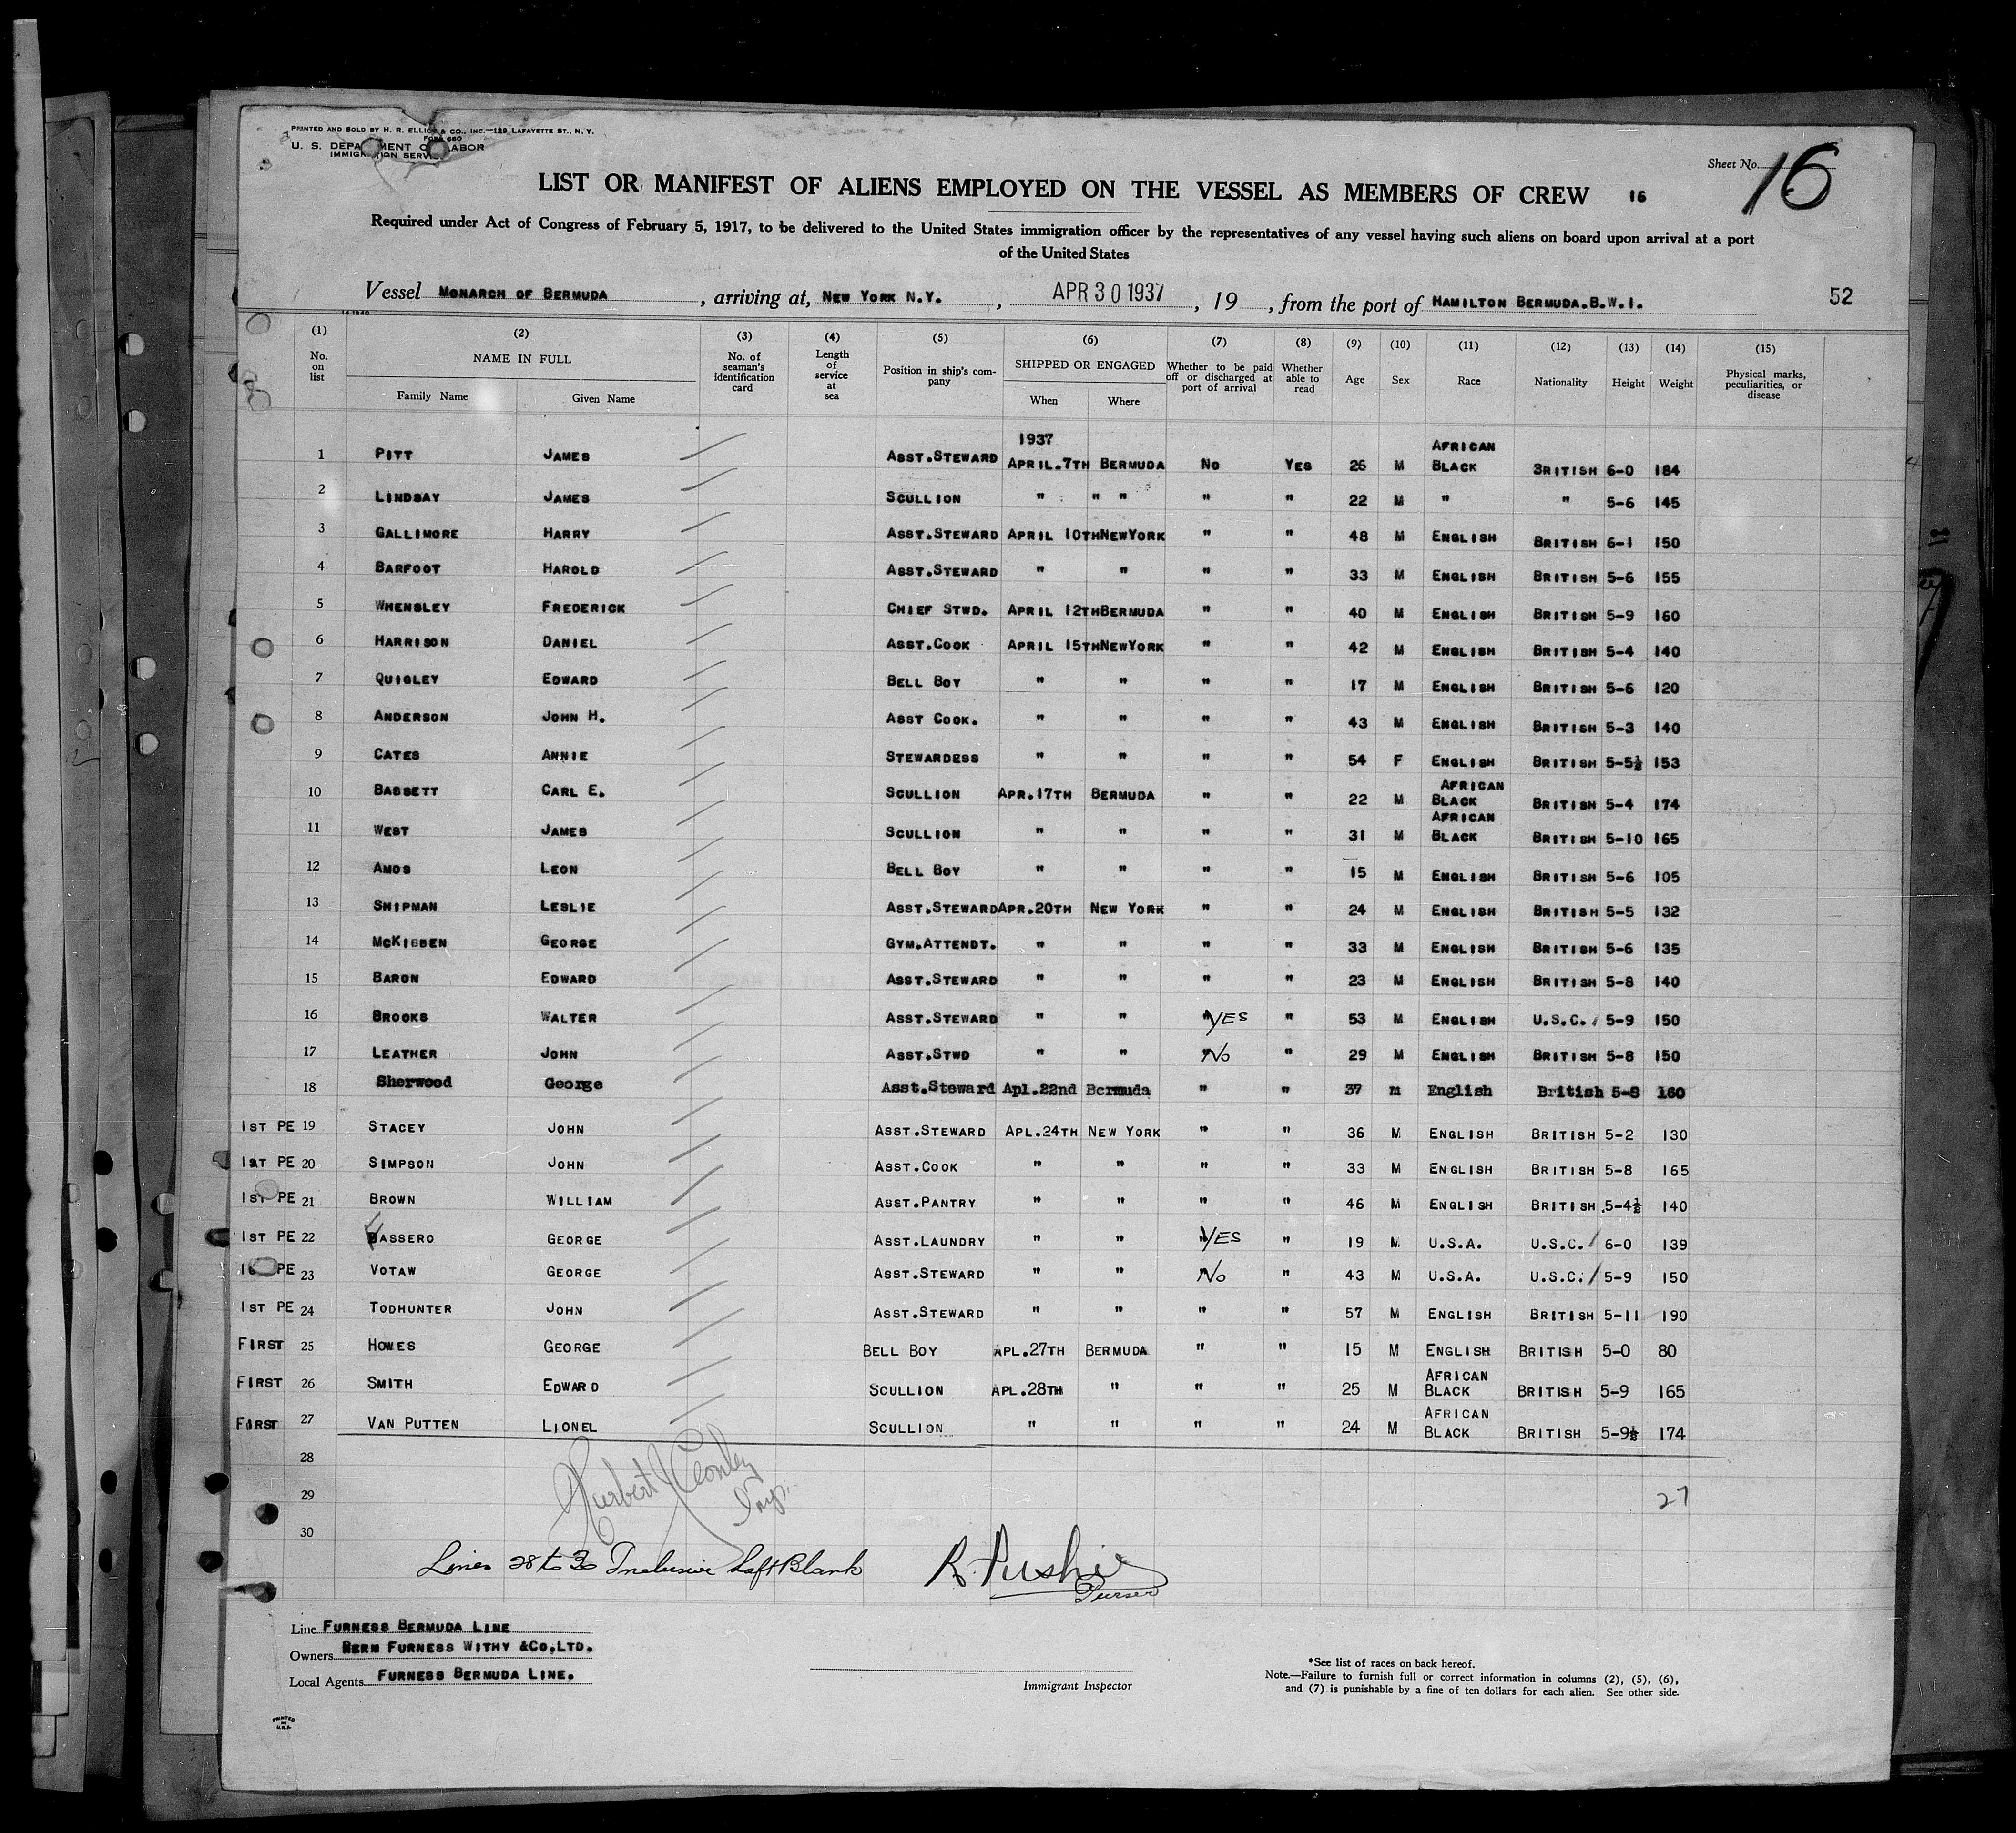 PRINTED AND SOLD BY H. R. ELLIOT & CO., INC.—129 LAFAYETTE ST., N. Y.
FORM 680
U. S. DEPARTMENT OF LABOR
IMMIGRATION SERVICE
Sheet No. 16
LIST OR MANIFEST OF ALIENS EMPLOYED ON THE VESSEL AS MEMBERS OF CREW 16
Required under Act of Congress of February 5, 1917, to be delivered to the United States immigration officer by the representatives of any vessel having such aliens on board upon arrival at a port
of the United States
Vessel MONARCH OF BERMUDA, arriving at, NEW YORK N.Y., APR 30 1937, 19, from the port of HAMILTON BERMUDA.B.W.I. 52
(1) (2) (3) (4) (5) (6) (7) (8) (9) (10) (11) (12) (13) (14) (15)
No. on list NAME IN FULL Family Name Given Name No. of seaman's identification card Length of service at sea Position in ship's company SHIPPED OR ENGAGED When Where Whether to be paid off or discharged at port of arrival Whether able to read Age Sex Race Nationality Height Weight Physical marks, peculiarities, or disease
1937
1 PITT JAMES ASST.STEWARD APRIL.7TH BERMUDA NO YES 26 M AFRICAN BLACK BRITISH 6-0 184
2 LINDSAY JAMES SCULLION " " " " " 22 M " " 5-6 145
3 GALLIMORE HARRY ASST.STEWARD APRIL 10TH NEW YORK " " 48 M ENGLISH BRITISH 6-1 150
4 BARFOOT HAROLD ASST.STEWARD " " " " 33 M ENGLISH BRITISH 5-6 155
5 WHENSLEY FREDERICK CHIEF STWD. APRIL 12TH BERMUDA " " 40 M ENGLISH BRITISH 5-9 160
6 HARRISON DANIEL ASST.COOK APRIL 15TH NEW YORK " " 42 M ENGLISH BRITISH 5-4 140
7 QUIGLEY EDWARD BELL BOY " " " " 17 M ENGLISH BRITISH 5-6 120
8 ANDERSON JOHN H. ASST COOK. " " " " 43 M ENGLISH BRITISH 5-3 140
9 CATES ANNIE STEWARDESS " " " " 54 F ENGLISH BRITISH 5-5½ 153
10 BASSETT CARL E. SCULLION APR.17TH BERMUDA " " 22 M AFRICAN BLACK BRITISH 5-4 174
11 WEST JAMES SCULLION " " " " 31 M AFRICAN BLACK BRITISH 5-10 165
12 AMOS LEON BELL BOY " " " " 15 M ENGLISH BRITISH 5-6 105
13 SHIPMAN LESLIE ASST.STEWARD APR.20TH NEW YORK " " 24 M ENGLISH BRITISH 5-5 132
14 MCKIBBEN GEORGE GYM.ATTENDT. " " " " 33 M ENGLISH BRITISH 5-6 135
15 BARON EDWARD ASST.STEWARD " " " " 23 M ENGLISH BRITISH 5-8 140
16 BROOKS WALTER ASST.STEWARD " " YES " 53 M ENGLISH U.S.C. 5-9 150
17 LEATHER JOHN ASST.STWD " " No " 29 M ENGLISH BRITISH 5-8 150
18 Sherwood George Asst.Steward Apl.22nd Bermuda " " 37 m English British 5-8 160
1ST PE 19 STACEY JOHN ASST.STEWARD APL.24TH NEW YORK " " 36 M ENGLISH BRITISH 5-2 130
1ST PE 20 SIMPSON JOHN ASST.COOK " " " " 33 M ENGLISH BRITISH 5-8 165
1ST PE 21 BROWN WILLIAM ASST.PANTRY " " " " 46 M ENGLISH BRITISH 5-4½ 140
1ST PE 22 BASSERO GEORGE ASST.LAUNDRY " " YES " 19 M U.S.A. U.S.C. 6-0 139
PE 23 VOTAW GEORGE ASST.STEWARD " " No " 43 M U.S.A. U.S.C. 5-9 150
1ST PE 24 TODHUNTER JOHN ASST.STEWARD " " " " 57 M ENGLISH BRITISH 5-11 190
FIRST 25 HOWES GEORGE BELL BOY APL.27TH BERMUDA " " 15 M ENGLISH BRITISH 5-0 80
FIRST 26 SMITH EDWARD SCULLION APL.28TH " " " 25 M AFRICAN BLACK BRITISH 5-9 165
FIRST 27 VAN PUTTEN LIONEL SCULLION " " " " 24 M AFRICAN BLACK BRITISH 5-9½ 174
28
29 27
30
Insp.
Lines 28 to 30 Inclusive Left Blank
Purser
Line FURNESS BERMUDA LINE
Owners FURNESS WITHY &CO,LTD.
Local Agents FURNESS BERMUDA LINE.
Immigrant Inspector
*See list of races on back hereof.
Note.—Failure to furnish full or correct information in columns (2), (5), (6),
and (7) is punishable by a fine of ten dollars for each alien. See other side.
PRINTED
IN
U.S.A.